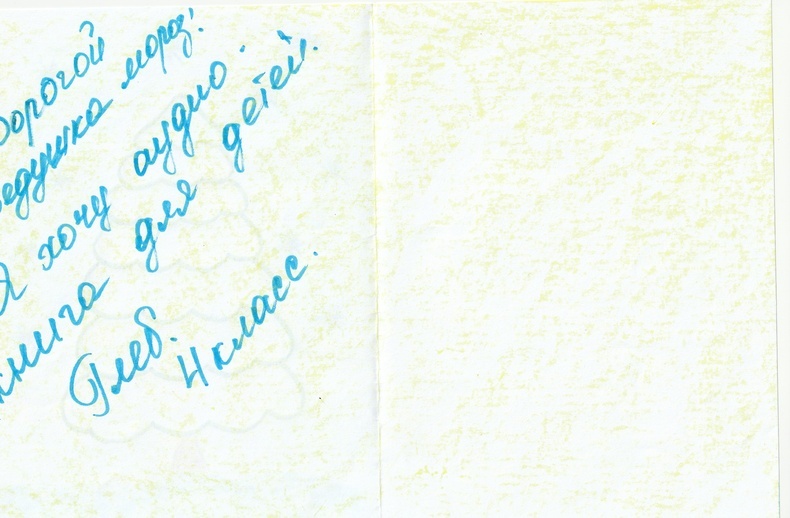 Дорогой
дедушка мороз!
Я хочу аудио.
книга для детей.
Глеб.
4 класс.